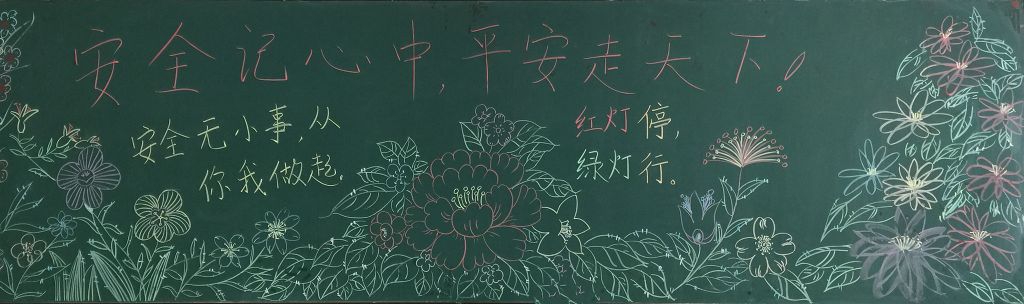 安全记心中,平安走天下!
安全无小事,从
你我做起。
红灯停,
绿灯行。